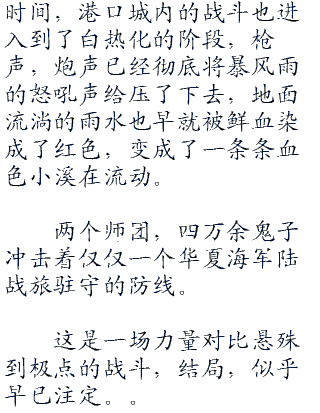 时间，港口城内的战斗也进
入到了白热化的阶段，枪
声，炮声已经彻底将暴风雨
的怒吼声给压了下去，地面
流淌的雨水也早就被鲜血染
成了红色，变成了一条条血
色小溪在流动。
两个师团，四万余鬼子
冲击着仅仅一个华夏海军陆
战旅驻守的防线。
这是一场力量对比悬殊
到极点的战斗，结局，似乎
早已注定。。